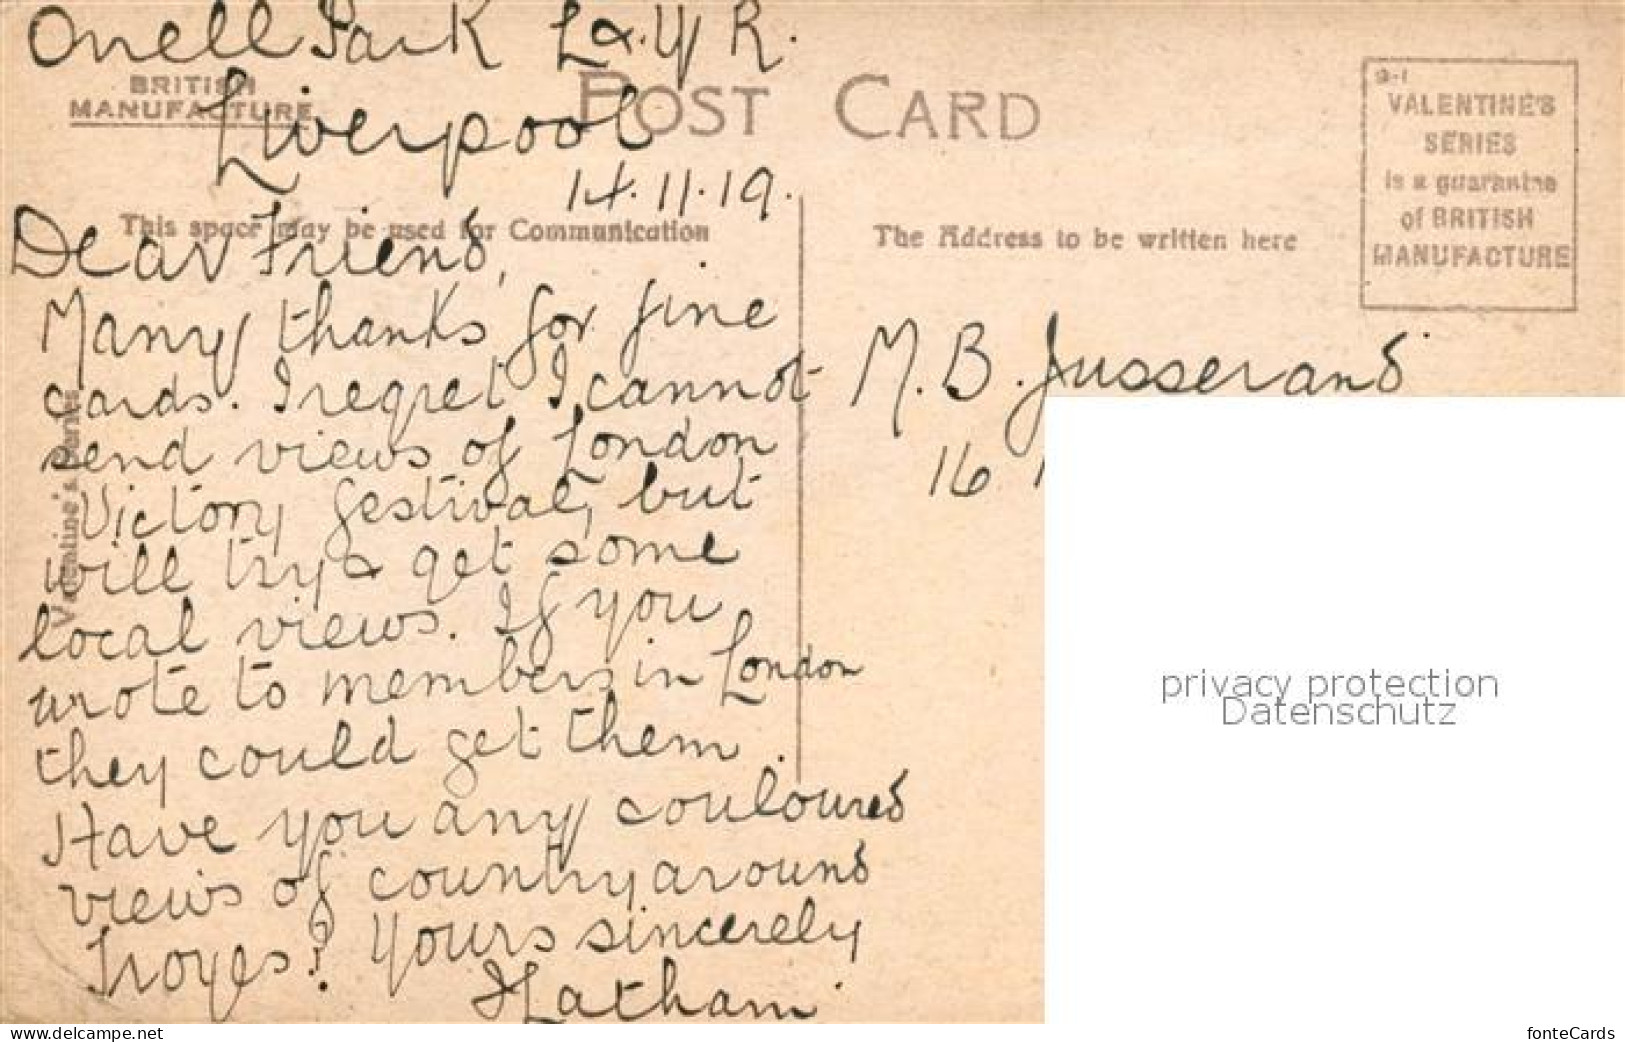 Orrell Park L & Y R.
BRITISH
MANUFACTURE
Liverpool
POST CARD
14.11.19.
This space may be used for Communication
Dear Friend,
Many thanks for fine
cards. I regret I cannot
send views of London
Victory festival, but
will try & get some
local views. If you
wrote to members in London
they could get them.
Have you any couloured
views of country around
Troyes? Yours sincerely
Latham
Valentine's Series
The Address to be written here
9-1
VALENTINE'S
SERIES
is a guarantee
of BRITISH
MANUFACTURE
M. B. Jusserand
16
privacy protection
Datenschutz
www.delcampe.net
fonteCards